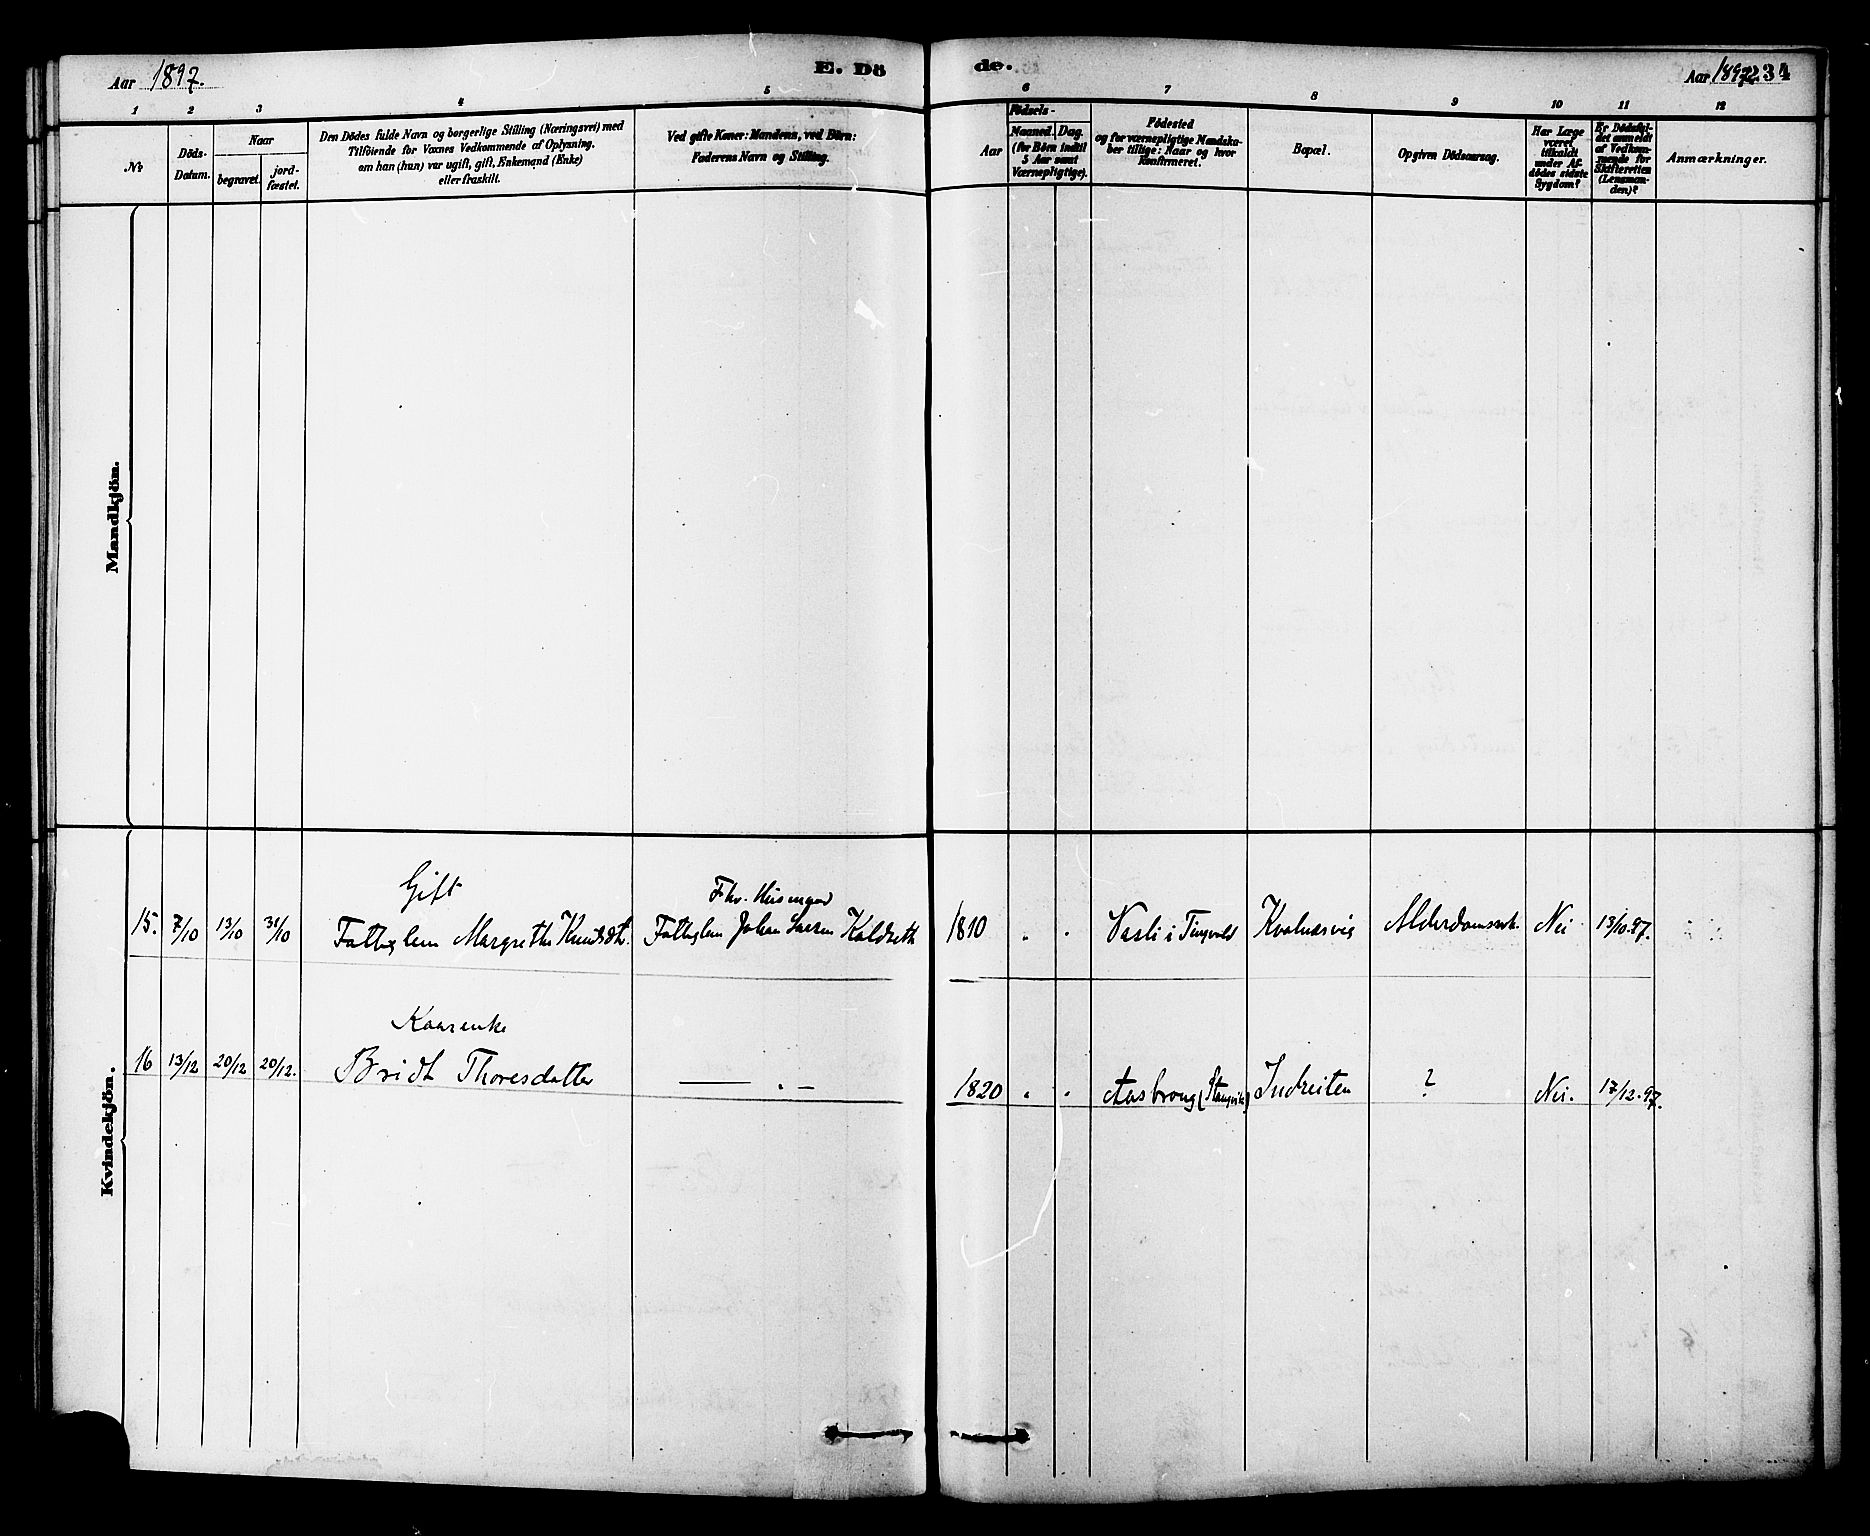 Aar 1897.
E. Dö
de.
Aar 1897.
234
1 2 3 4 5 6 7 8 9 10 11 12
№
Döds-
Datum.
Naar
begravet.
jord-
fæstet.
Den Dödes fulde Navn og borgerlige Stilling (Næringsvei) med
Tilföiende for Voxnes Vedkommende af Oplysning.
om han (hun) var ugift, gift, Enkemand (Enke)
eller fraskilt.
Ved gifte Koner: Mandens, ved Börn:
Faderens Navn og Stilling.
Födsels-
Aar
Maaned. Dag.
(for Börn indtil
5 Aar samt
Værnepligtige).
Födested
og for værnepligtige Mandska-
ber tillige: Naar og hvor
Konfirmeret.
Bopæl.
Opgiven Dödsaarsag.
Har Læge
været
tilkaldt
under Af-
dödes sidste
Sygdom?
Er Dödsfal-
det anmeldt
af Vedkom-
mende for
Skifteretten
(Lensman-
den)?
Anmærkninger.
Mandkjön.
Kvindekjön.
Gift
Fhv. Husmand
15. 7/10 13/10 31/10 Fattiglem Margrethe Knudsdt. Fattiglem Johan Larsen Koldseth 1810 " " Vasli i Tingvold Kvalnæsvig Alderdomssvk. Nei 13/10.97.
Kaarenke
16 13/12 20/12 20/12. Bridt Thoresdatter — " — 1820 " " Aasbrong (Stangvik) Indreiten ? Nei. 17/12.97.